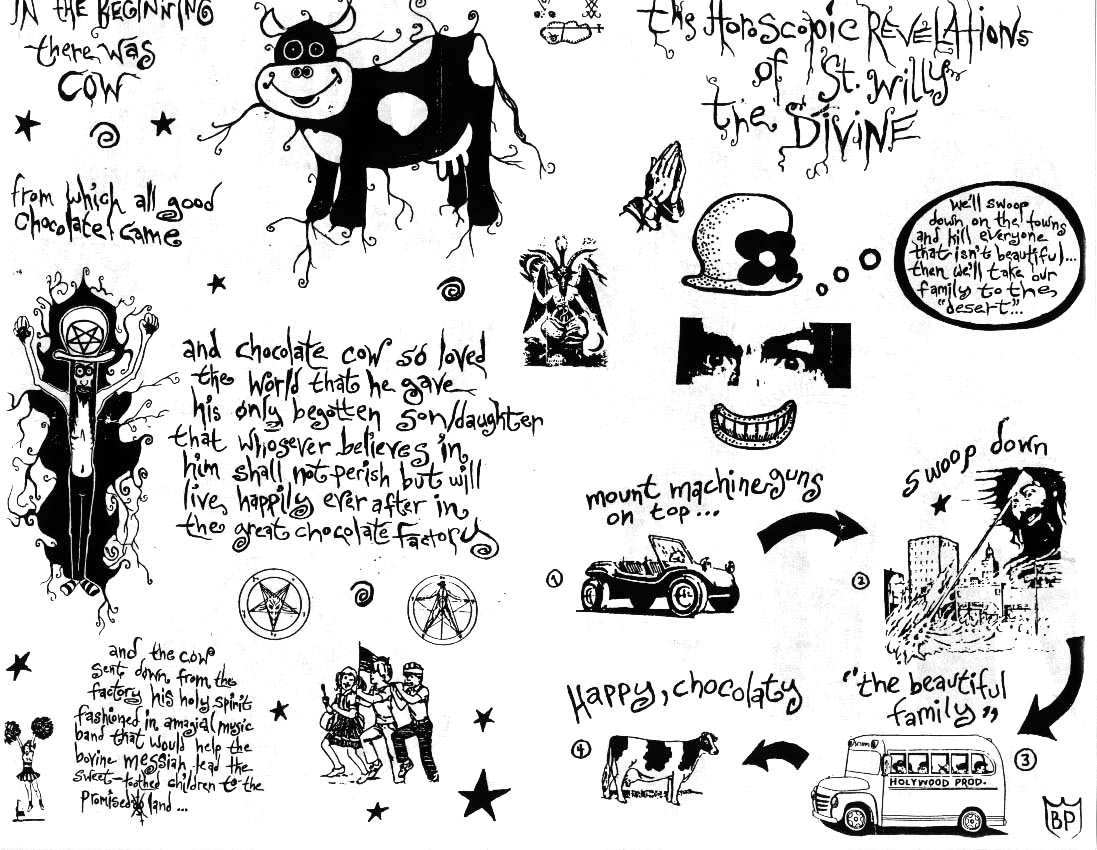 IN the BEGINNING
there was
COW
from which all good
Chocolate Came
and chocolate cow so loved
the world that he gave
his only begotten son/daughter
that whosever believes in
him shall not perish but will
live happily ever after in
the great chocolate factory
and the cow
sent down from the
factory his holy spirit
fashioned in a magical music
band that would help the
bovine messiah lead the
sweet-toothed children to the
Promised land...
the Horoscopic REVELATIONS
of St. Willy
the DIVINE
we'll swoop
down on the towns
and kill everyone
that isn't beautiful...
then we'll take our
family to the
"desert"...
mount machineguns
on top...
1
swoop down
2
"the beautiful
family"
3
HOLYWOOD PROD.
Happy, chocolaty
4
BP